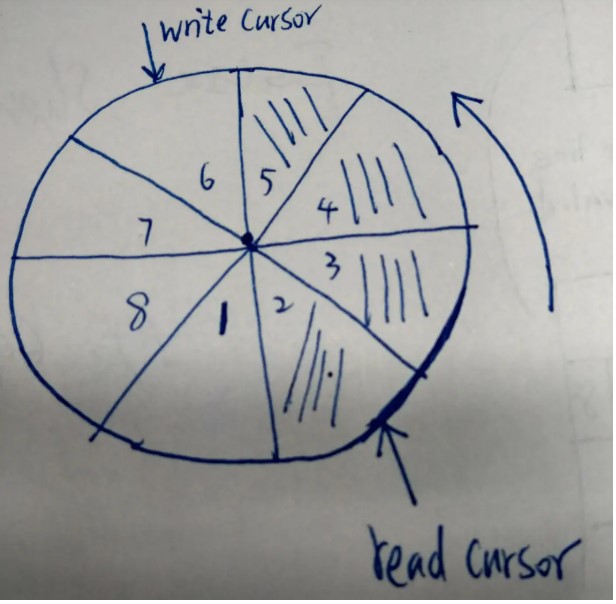 write cursor
5
6
4
7
3
8
1
2
read cursor